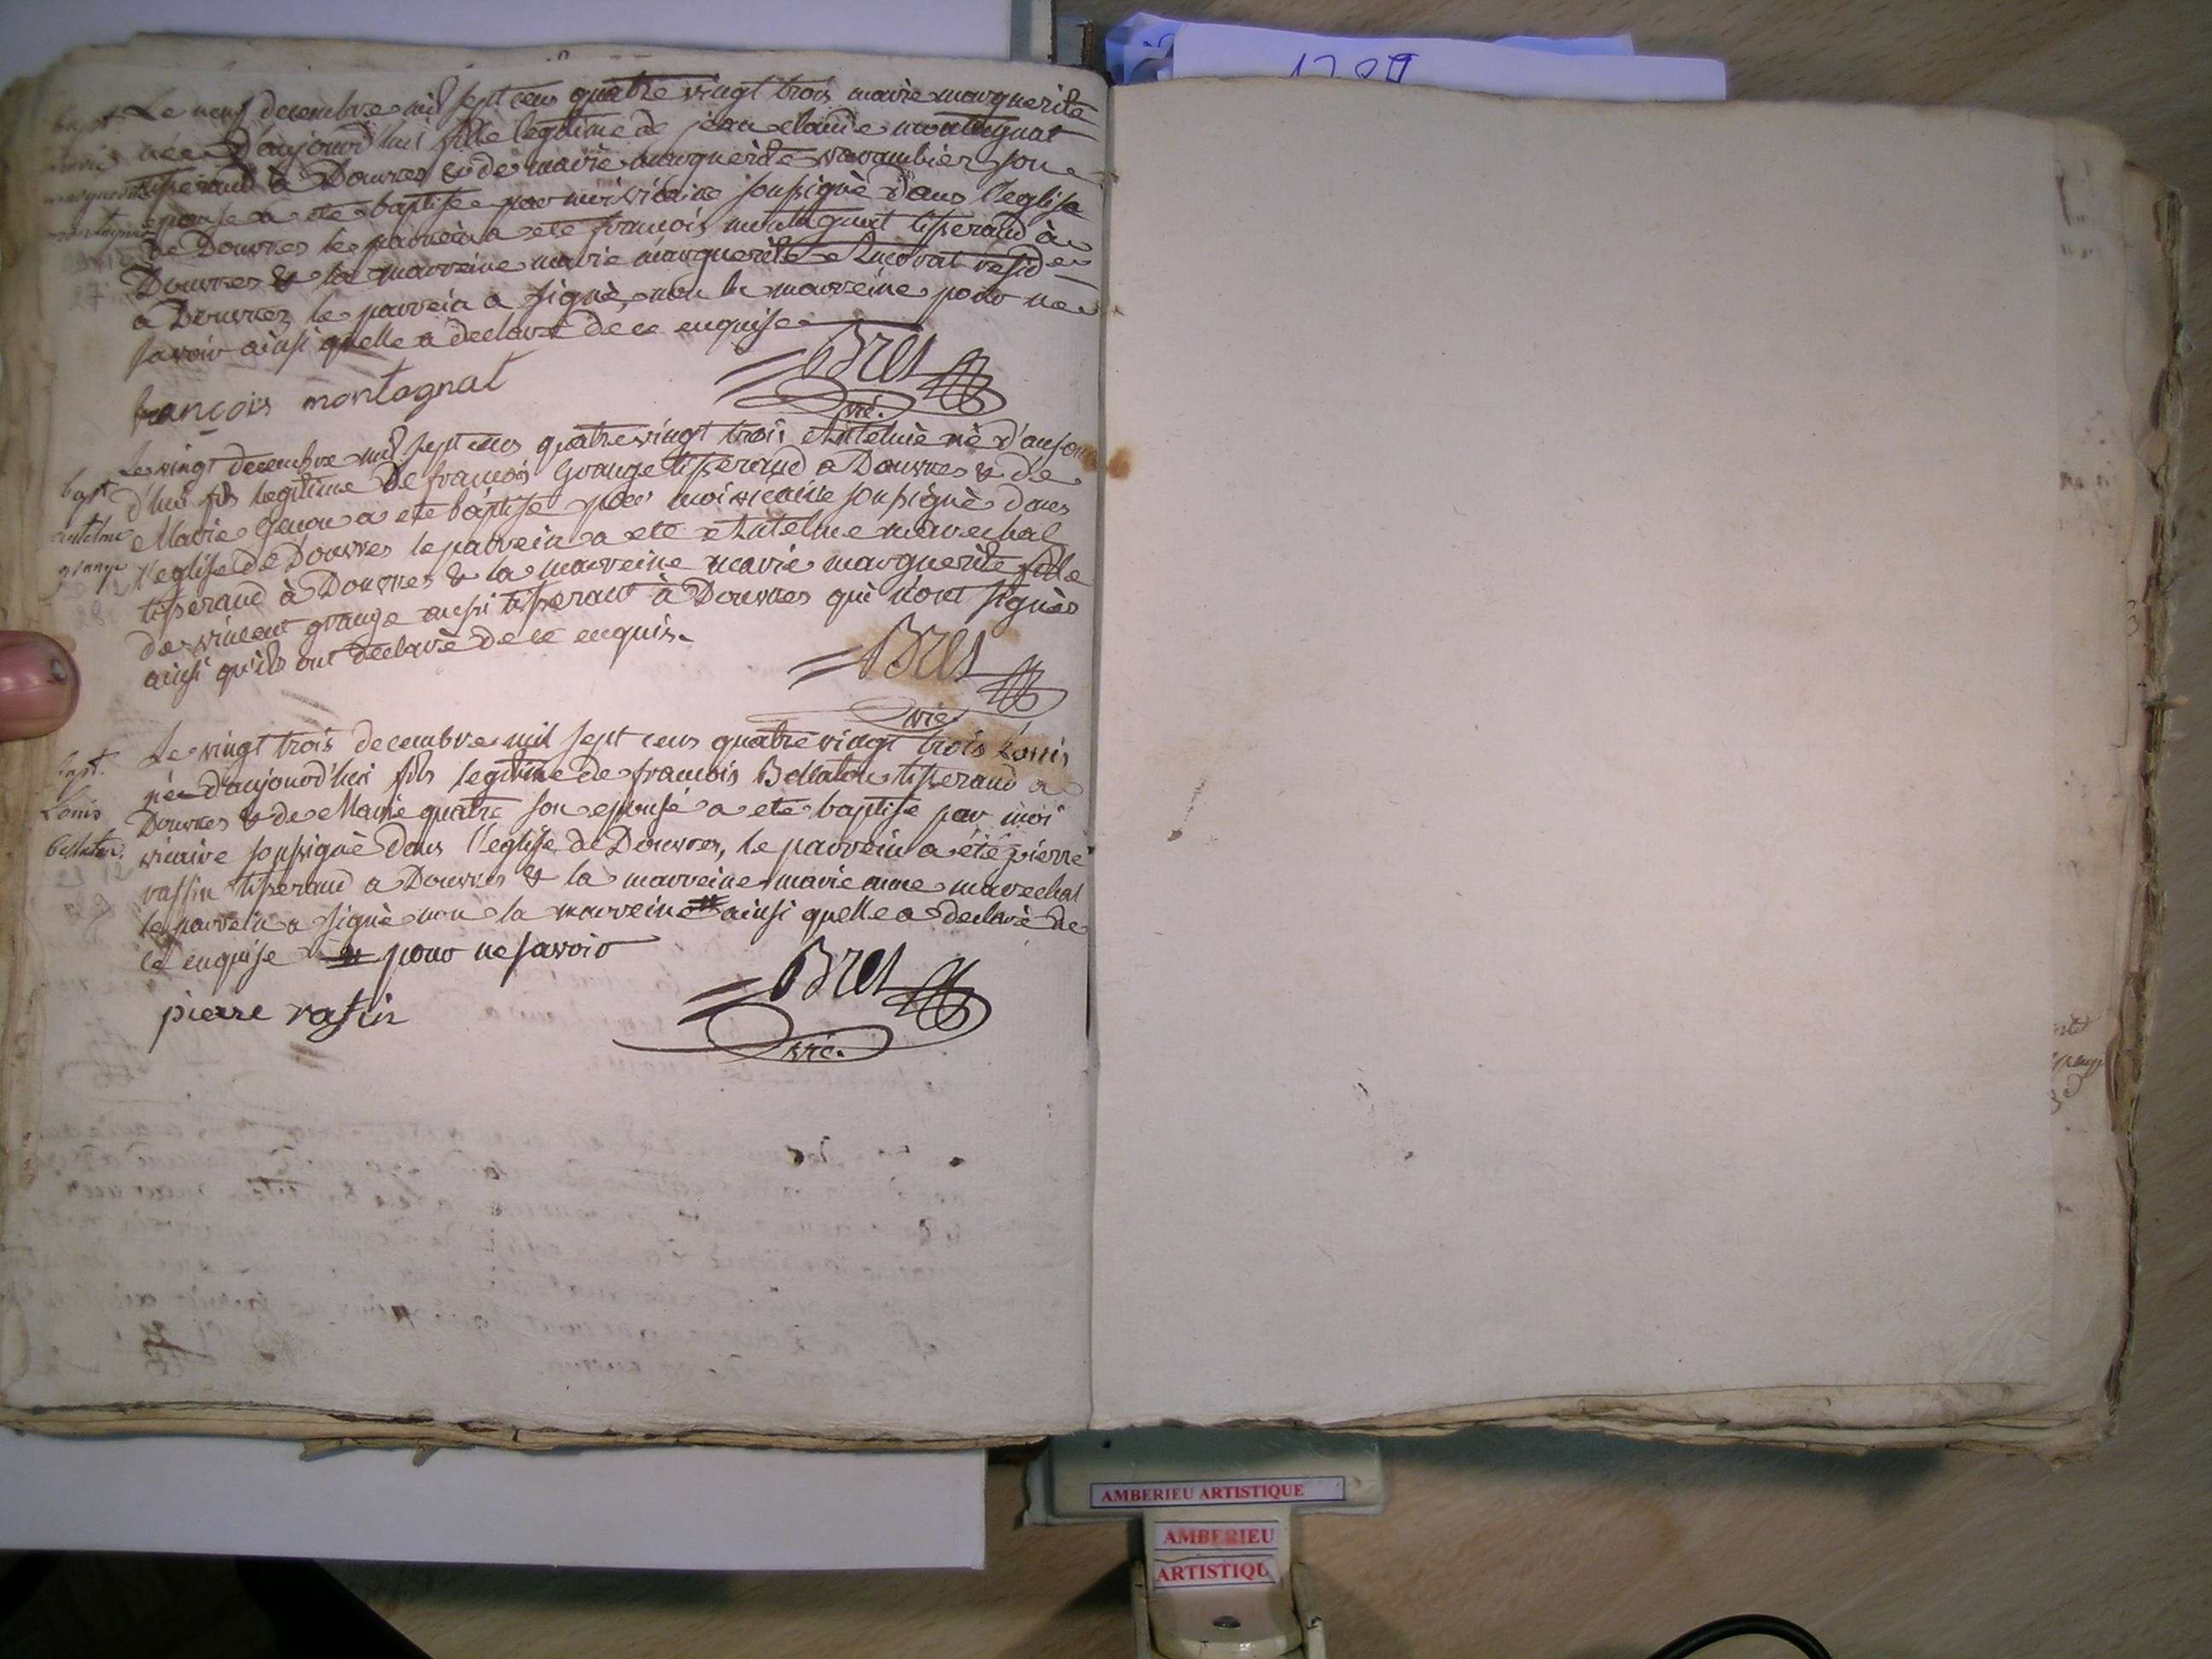 bapt.
marie
marguerite
montagnat
Le neuf decembre mil sept cens quatre vingt trois marie marguerite
née d'aujourd'hui fille legitime de jean claude montagnat
tisserand à Douvres & de marie marguerite varambier son
epouse a eté baptisée par moi vicaire soussigné dans l'eglise
de Douvres le parrein a eté françois montagnat tisserand à
Douvres & la marreine marie marguerite resid
a Douvres, le parrein a signé, non la marreine pour ne
savoir ainsi quelle a declaré de ce enquise
françois montagnat
Bres
vic.
bapt.
antelme
grange
Le vingt decembre mil sept cens quatre vingt trois Antelme né d'aujour
d'hui fils legitime de françois Grange tisserand a Douvres & de
Marie Genou a eté baptisé par moi vicaire soussigné dans
l'eglise de Douvres le parrein a eté Antelme marechal
tisserand à Douvres & la marreine marie marguerite fille
de vincent grange aussi tisserant à Douvres qui n'ont signés
ainsi qu'ils ont declaré de ce enquis.
Bres
vic.
bapt.
Louis
bellaton.
Le vingt trois decembre mil sept cens quatre vingt trois Louis
né d'aujourd'hui fils legitime de françois Bellaton tisserand a
Douvres & de Marie quatre son epouse a eté baptisé par moi
vicaire soussigné dans l'eglise de Douvres, le parrein a été pierre
rassin tisserand a Douvres & la marreine marie anne marechal
le parrein a signé non la marreine # ainsi quelle a declaré de
ce enquise # pour ne savoir
pierre rasin
Bres
vic.
AMBERIEU ARTISTIQUE
AMBERIEU
ARTISTIQU